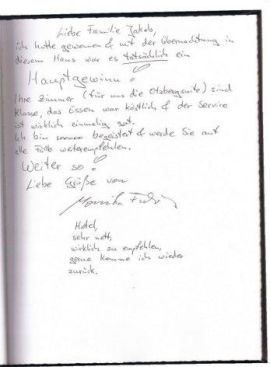 Liebe Familie Jakob,
ich hatte gewonnen & mit der Übernachtung in
diesem Haus war es tatsächlich ein
Hauptgewinn.
Ihre Zimmer (für uns die) sind
Klasse, das Essen war köstlich & der Service
ist wirklich einmalig gut.
Ich bin begeistert & werde Sie auf
alle Fälle weiterempfehlen.
Weiter so.
Liebe Grüße von
Monika
Hotel,
sehr nett,
wirklich zu empfehlen,
gerne komme ich wieder
zurück.